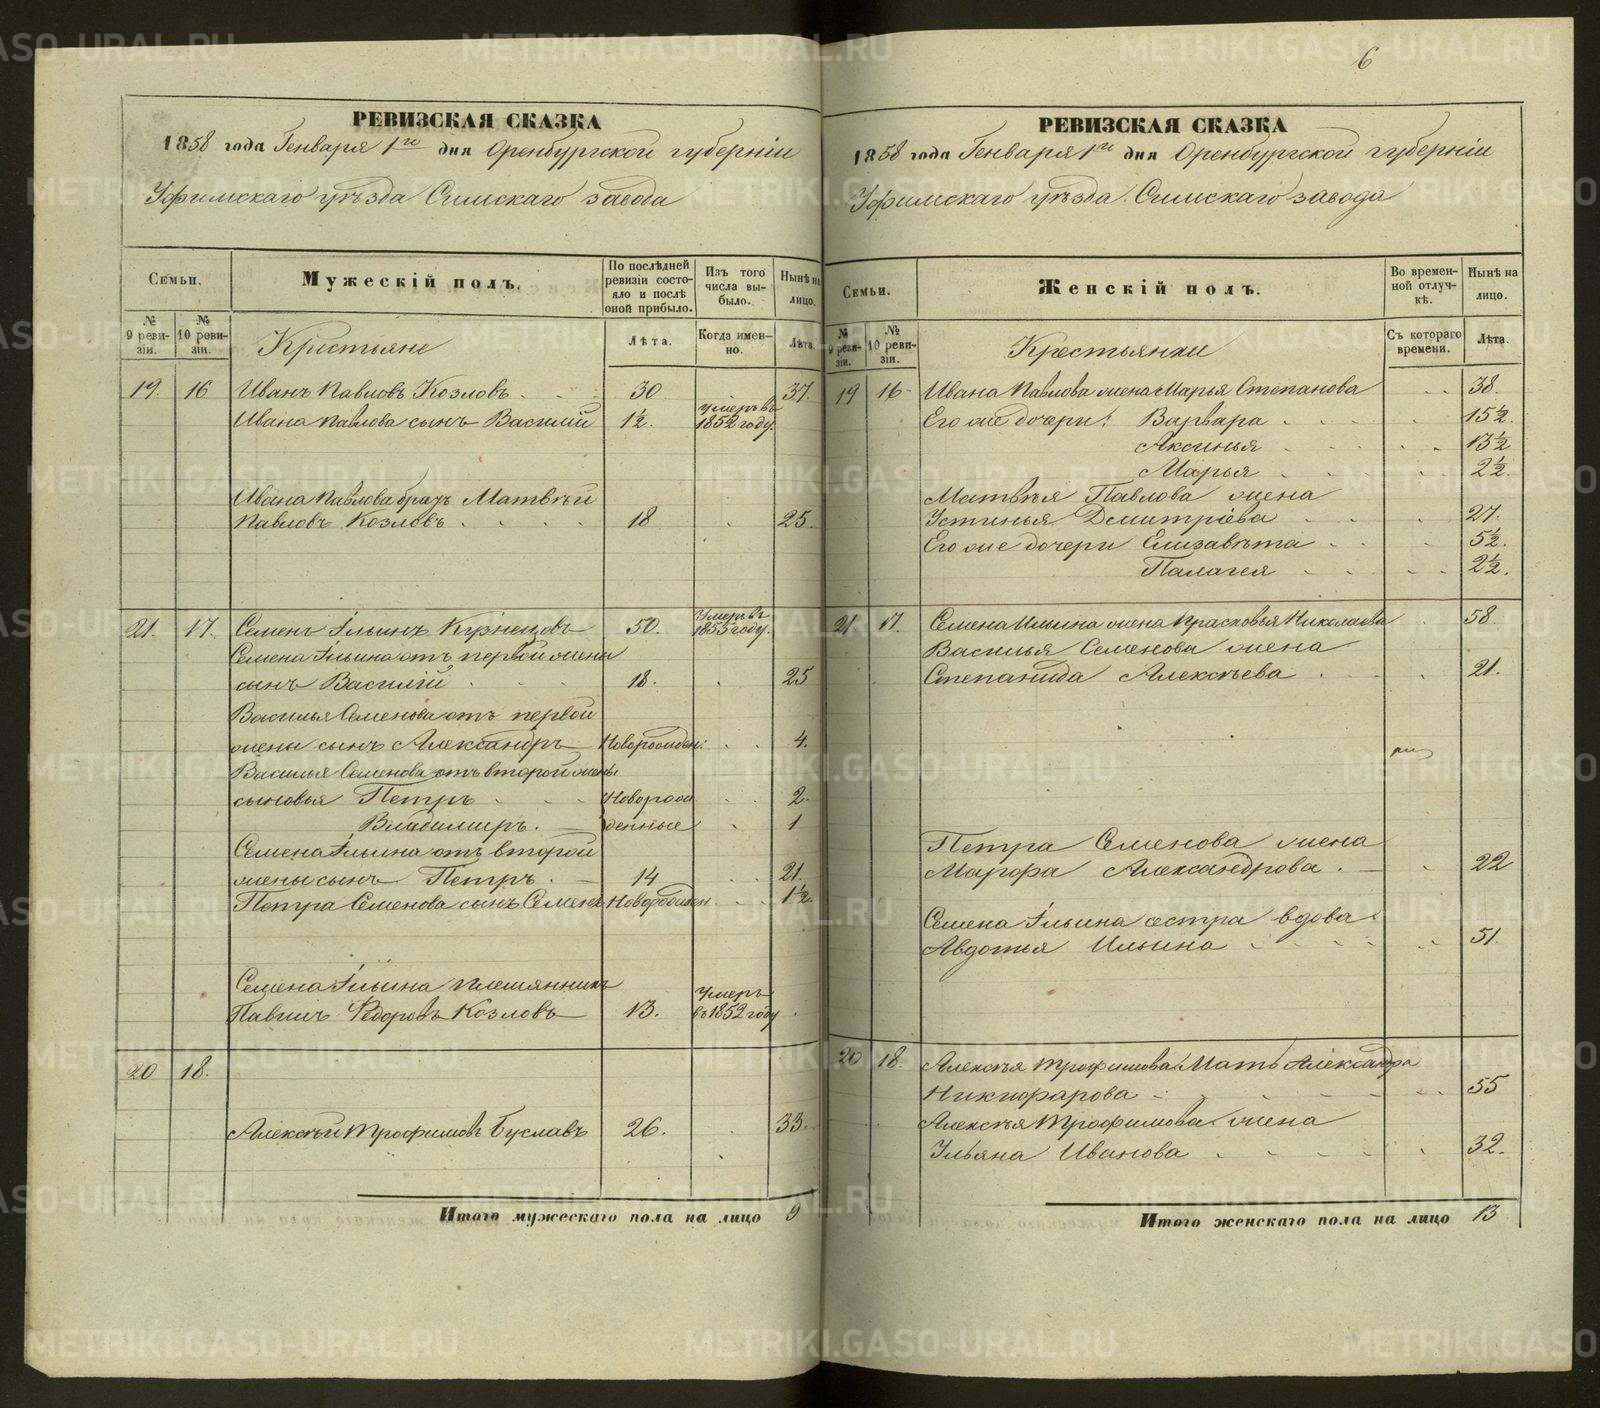 6
РЕВИЗСКАЯ СКАЗКА
1858 года Генваря 1го дня Оренбургской губерніи
Уфимскаго уѣзда Симскаго завода
Семьи.
№ 9 ревизіи.
№ 10 ревизіи.
Мужескій полъ.
По послѣдней ревизіи состояло и послѣ оной прибыло.
Изъ того числа выбыло.
Нынѣ на лицо.
Крестьяне
Лѣта.
Когда именно.
Лѣта.
19. 16 Иванъ Павловъ Козловъ 30 37.
Ивана Павлова сынъ Василій 1½. умеръ въ 1852 году.
Ивана Павлова братъ Матвѣй
Павловъ Козловъ 18 25.
21. 17. Семенъ Ильинъ Кузнецовъ 50. Умеръ въ 1855 году.
Семена Ильина отъ первой жены
сынъ Василій 18. 25
Василья Семенова отъ первой
жены сынъ Александръ Новорожден: 4.
Василья Семенова отъ второй жены
сыновья Петръ Новорож 2.
Владимиръ. денные 1
Семена Ильина отъ второй
жены сынъ Петръ. 14 21.
Петра Семенова сынъ Семенъ Новорожден 1½.
Семена Ильина племянникъ
Павелъ Федоровъ Козловъ 13. Умеръ въ 1852 году
20 18.
Алексѣй Трофимовъ Буславъ 26. 33.
Итого мужескаго пола на лицо 9
РЕВИЗСКАЯ СКАЗКА
1858 года Генваря 1го дня Оренбургской губерніи
Уфимскаго уѣзда Симскаго завода
Семьи.
№ 9 ревизіи.
№ 10 ревизіи.
Женскій полъ.
Во временной отлучкѣ.
Нынѣ на лицо.
Крестьянки
Съ котораго времени.
Лѣта.
19 16 Ивана Павлова жена Марья Степанова 38.
Его же дочери: Варвара 15½
Аксинья 13½
Марья 2½.
Матвѣя Павлова жена
Устинья Дмитріева 27.
Его же дочери Елизавѣта 5½.
Палагея 2½.
21 17. Семена Ильина жена Прасковья Николаева 58.
Василья Семенова жена
Степанида Алексѣева 21.
Петра Семенова жена
Марфа Александрова. 22
Семена Ильина сестра вдова
Авдотья Ильина 51.
20 18. Алексѣя Трофимова Мать Александра
Никифарова 55
Алексѣя Трофимова жена
Ульяна Иванова 32.
Итого женскаго пола на лицо 13
METRIKI.GASO-URAL.RU